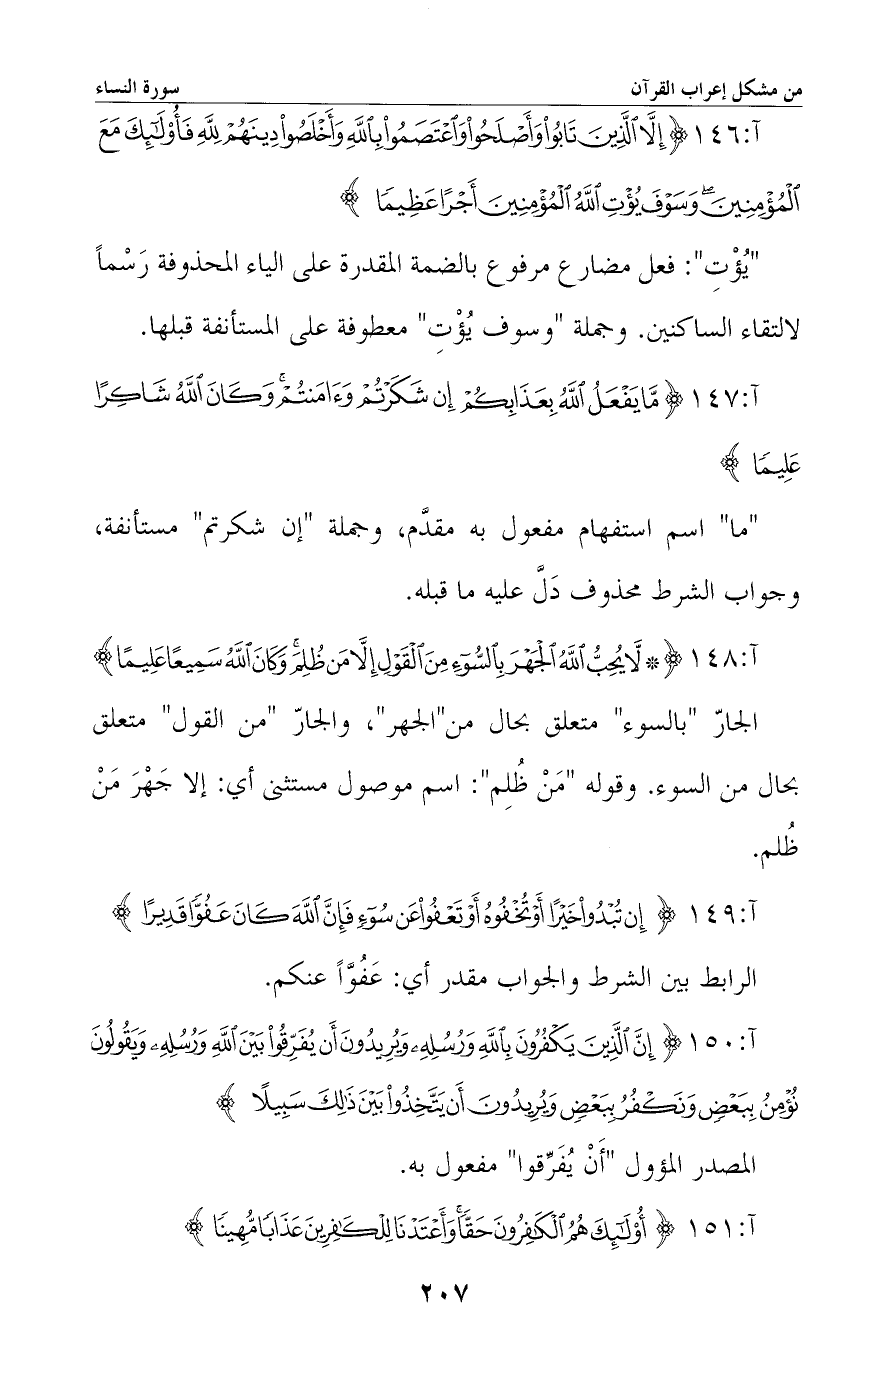 من مشكل إعراب القرآن سورة النساء
آ:١٤٦ ﴿ إِلَّا ٱلَّذِينَ تَابُواْ وَأَصۡلَحُواْ وَٱعۡتَصَمُواْ بِٱللَّهِ وَأَخۡلَصُواْ دِينَهُمۡ لِلَّهِ فَأُوْلَٰٓئِكَ مَعَ
ٱلۡمُؤۡمِنِينَۖ وَسَوۡفَ يُؤۡتِ ٱللَّهُ ٱلۡمُؤۡمِنِينَ أَجۡرًا عَظِيمٗا ﴾
"يُؤْتِ": فعل مضارع مرفوع بالضمة المقدرة على الياء المحذوفة رَسْماً
لالتقاء الساكنين. وجملة "وسوف يُؤْتِ" معطوفة على المستأنفة قبلها.
آ:١٤٧ ﴿ مَّا يَفۡعَلُ ٱللَّهُ بِعَذَابِكُمۡ إِن شَكَرۡتُمۡ وَءَامَنتُمۡۚ وَكَانَ ٱللَّهُ شَاكِرًا
عَلِيمٗا ﴾
"ما" اسم استفهام مفعول به مقدَّم، وجملة "إن شكرتم" مستأنفة،
وجواب الشرط محذوف دَلَّ عليه ما قبله.
آ:١٤٨ ﴿ * لَّا يُحِبُّ ٱللَّهُ ٱلۡجَهۡرَ بِٱلسُّوٓءِ مِنَ ٱلۡقَوۡلِ إِلَّا مَن ظُلِمَۚ وَكَانَ ٱللَّهُ سَمِيعًا عَلِيمًا ﴾
الجارّ "بالسوء" متعلق بحال من"الجهر"، والجارّ "من القول" متعلق
بحال من السوء. وقوله "مَنْ ظُلِم": اسم موصول مستثنى أي: إلا جَهْرَ مَنْ
ظُلم.
آ:١٤٩ ﴿ إِن تُبۡدُواْ خَيۡرًا أَوۡ تُخۡفُوهُ أَوۡ تَعۡفُواْ عَن سُوٓءٖ فَإِنَّ ٱللَّهَ كَانَ عَفُوّٗا قَدِيرًا ﴾
الرابط بين الشرط والجواب مقدر أي: عَفُوَّاً عنكم.
آ:١٥٠ ﴿ إِنَّ ٱلَّذِينَ يَكۡفُرُونَ بِٱللَّهِ وَرُسُلِهِۦ وَيُرِيدُونَ أَن يُفَرِّقُواْ بَيۡنَ ٱللَّهِ وَرُسُلِهِۦ وَيَقُولُونَ
نُؤۡمِنُ بِبَعۡضٖ وَنَكۡفُرُ بِبَعۡضٖ وَيُرِيدُونَ أَن يَتَّخِذُواْ بَيۡنَ ذَٰلِكَ سَبِيلًا ﴾
المصدر المؤول "أَنْ يُفَرِّقوا" مفعول به.
آ:١٥١ ﴿ أُوْلَٰٓئِكَ هُمُ ٱلۡكَٰفِرُونَ حَقّٗاۚ وَأَعۡتَدۡنَا لِلۡكَٰفِرِينَ عَذَابٗا مُّهِينٗا ﴾
٢٠٧